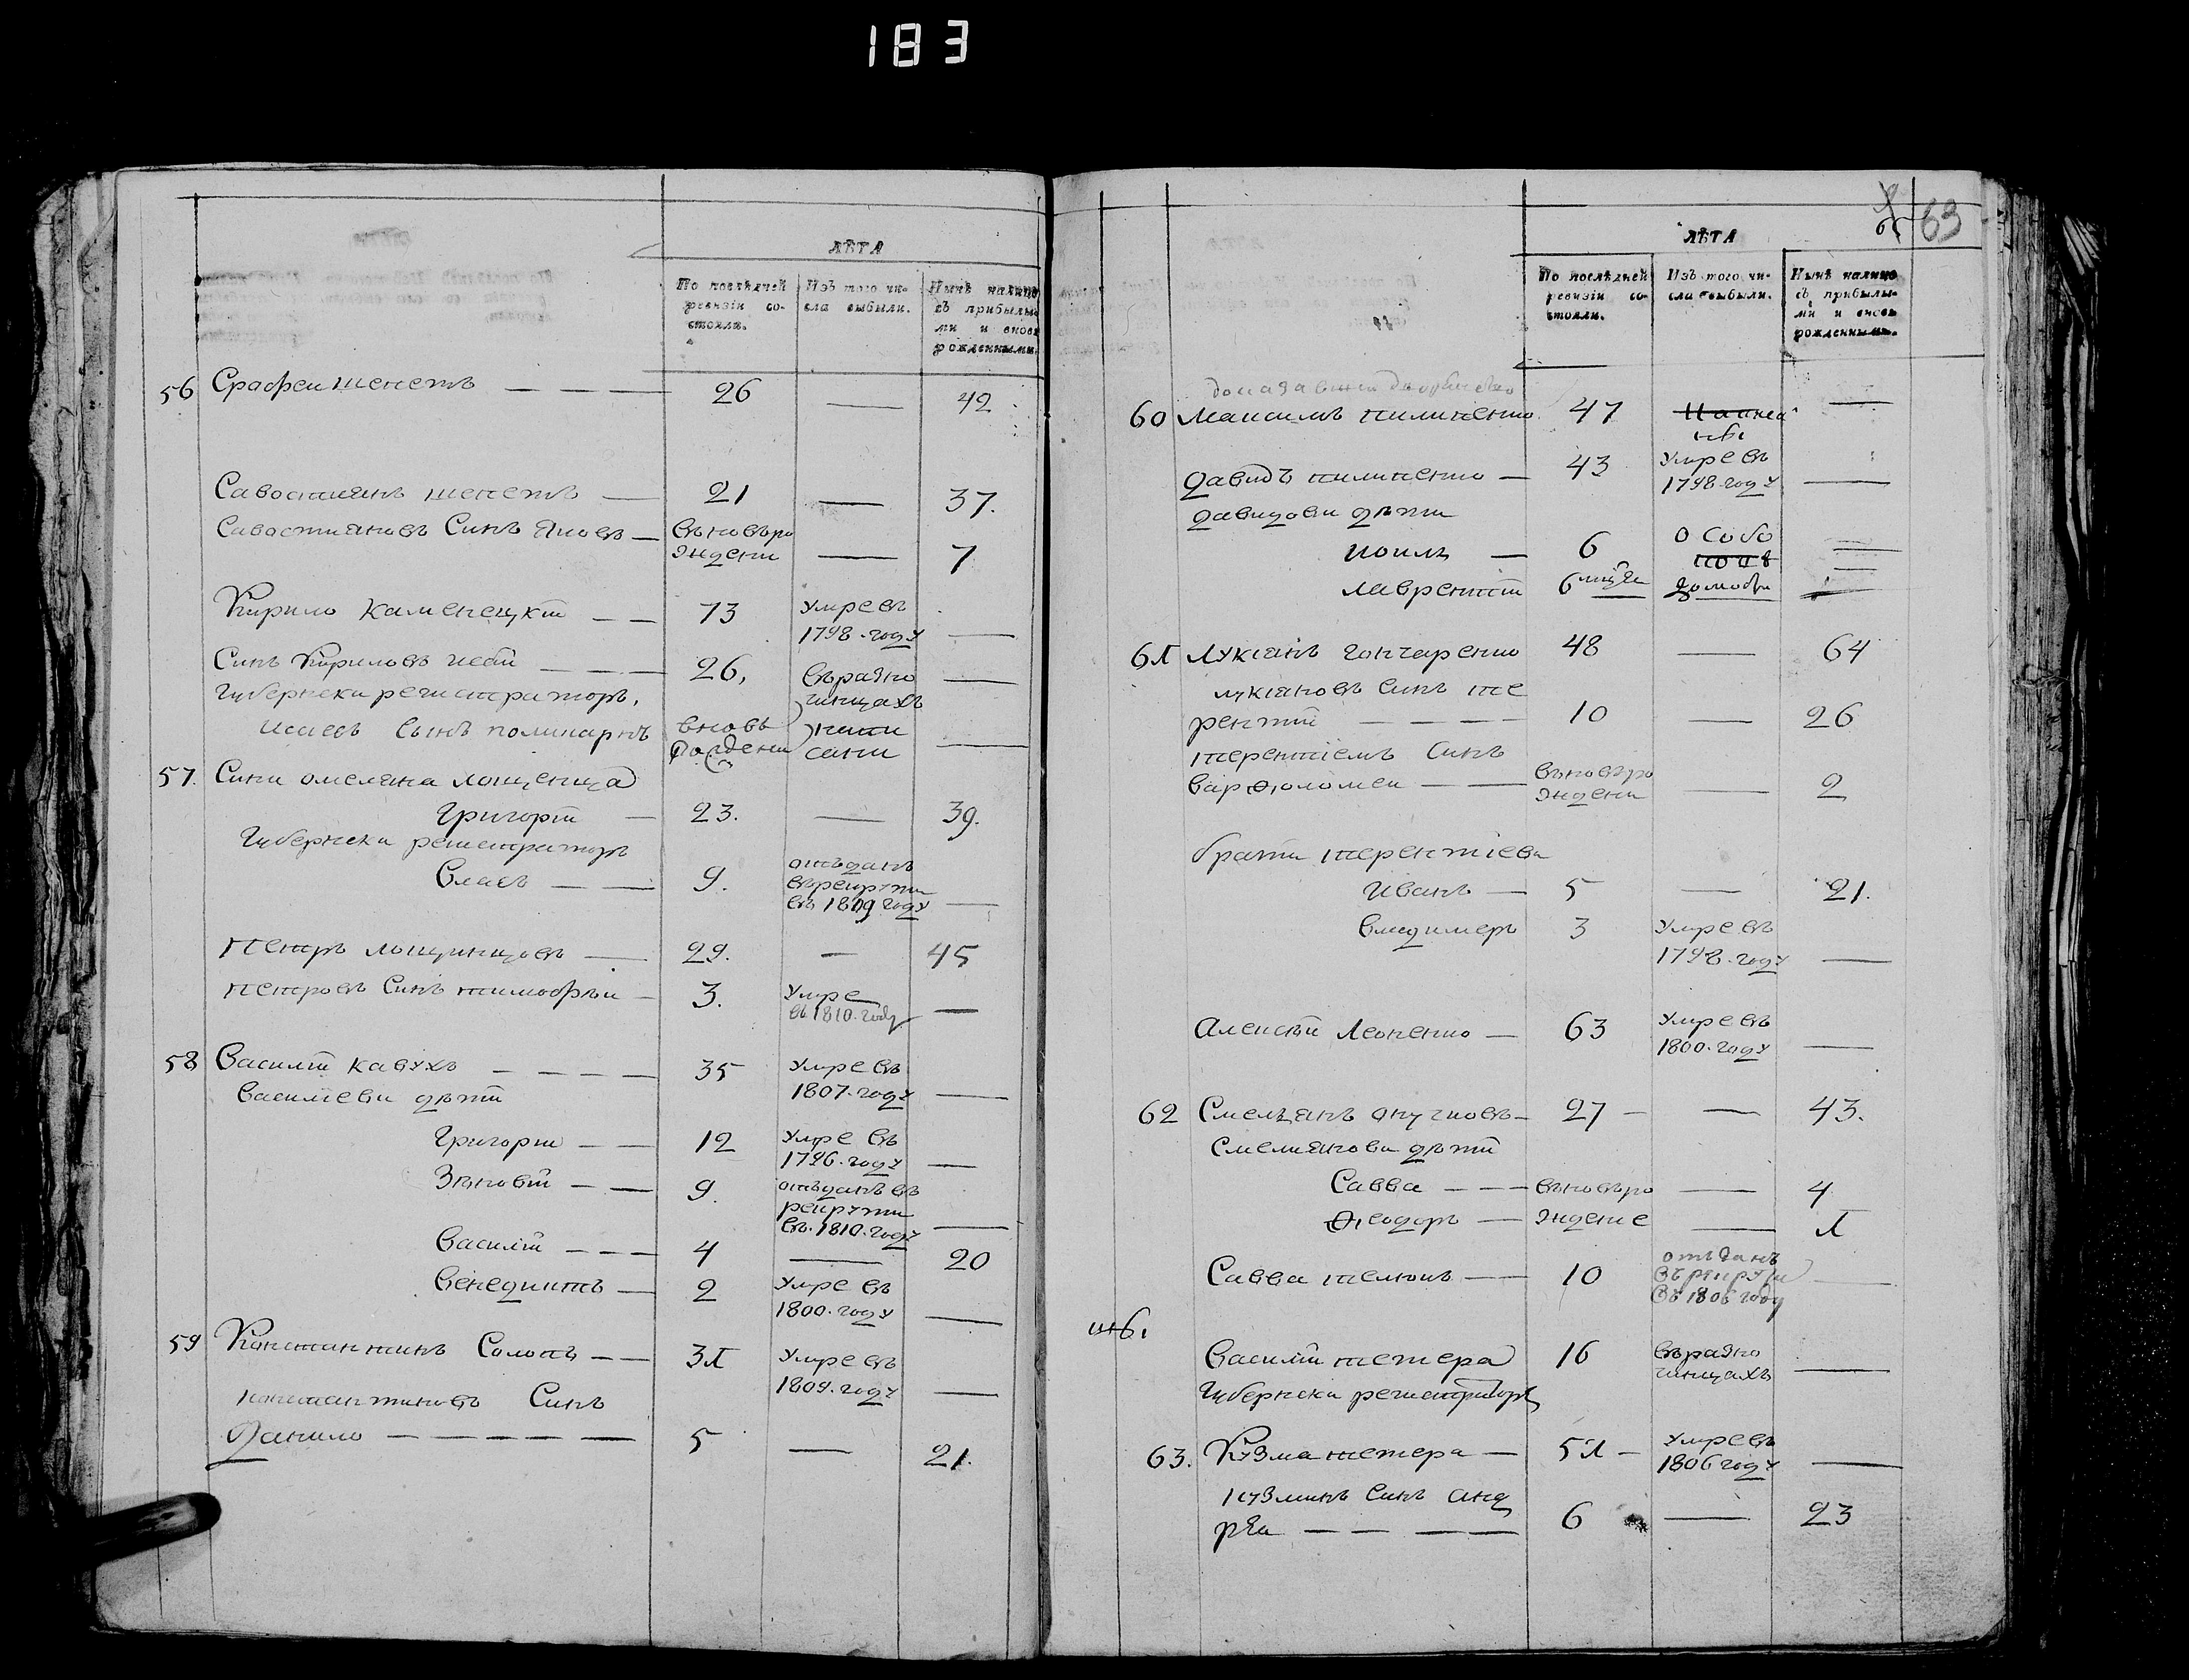 183
63
ЛѢТА
По послѣдней ревизіи состояли.
Изъ того числа выбыли.
Нынѣ налицо съ прибылыми и вновь рожденными.
56 Єрофеи шепетъ — — — 26 — 42
Савостиянъ шепетъ — 21 — 37.
Савостияновъ Синъ Яковъ — вьноворо
ждени — 7
Кирило Каменецкій — — 73 Умре въ
1798. году —
Синъ Кириловъ — — — 26, въразно —
Губернски регистраторъ, чинцахъ
Исаевъ Сынъ поликарпъ вновь напи
рождени сани —
57. Сини омеляна
Григорій — 23. — 39.
Губернски регистраторъ
Власъ — — 9. отъданъ
въ рекрути
въ 1809 году —
Петръ — 29. — 45
Петровъ Синъ тимофѣи — 3. Умре
въ 1810. году —
58 Василій Кавухъ — — — — 35 Умре въ
Василіеви дѣти 1807. году —
Григори — — 12 Умре въ
1796. году —
Зѣновій — — 9. отъданъ въ
рекрути
въ. 1810. году —
Василій — — — 4 — 20
Бенедиктъ — 2 Умре въ
1800. году —
59 Константинъ Солопъ — — 31 Умре въ
1809. году —
константиновъ Синъ
Данило — — — — — 5 — 21.
ЛѢТА
По послѣдней ревизіи состояли.
Изъ того числа выбыли.
Нынѣ налицо съ прибылыми и вновь рожденными.
60 Максимъ пилипенко 47 —
Давидъ пилипенко — 43 Умре въ
1798. году —
Давидови дѣти
— 6 Особо
Лаврентій 6
61 Лукіанъ гончаренко 48 — 64
лукіановъ Синъ те
рентій — — — — 10 — 26
терентіевъ Синъ
Варѳоломеи — — вьноворо
ждени — 2
брати терентіеви
Иванъ — 5 — 21.
Владимеръ 3 Умре въ
1798. году —
Алексѣй Леоненко — 63 Умре въ
1800. году —
62 27 — — 43.
дѣти
Савва — — вьноворо — 4
Ѳеодоръ — ждение — 1
Савва — — 10 отъданъ
въ рекрути
въ 1806 году —
Василій тетера 16 въразно
чинцахъ —
Губернски регистраторъ
63. Кузма тетера — 51 — Умре въ
1806 году —
кузминъ Синъ анд
рѣи — — — — 6 — 23